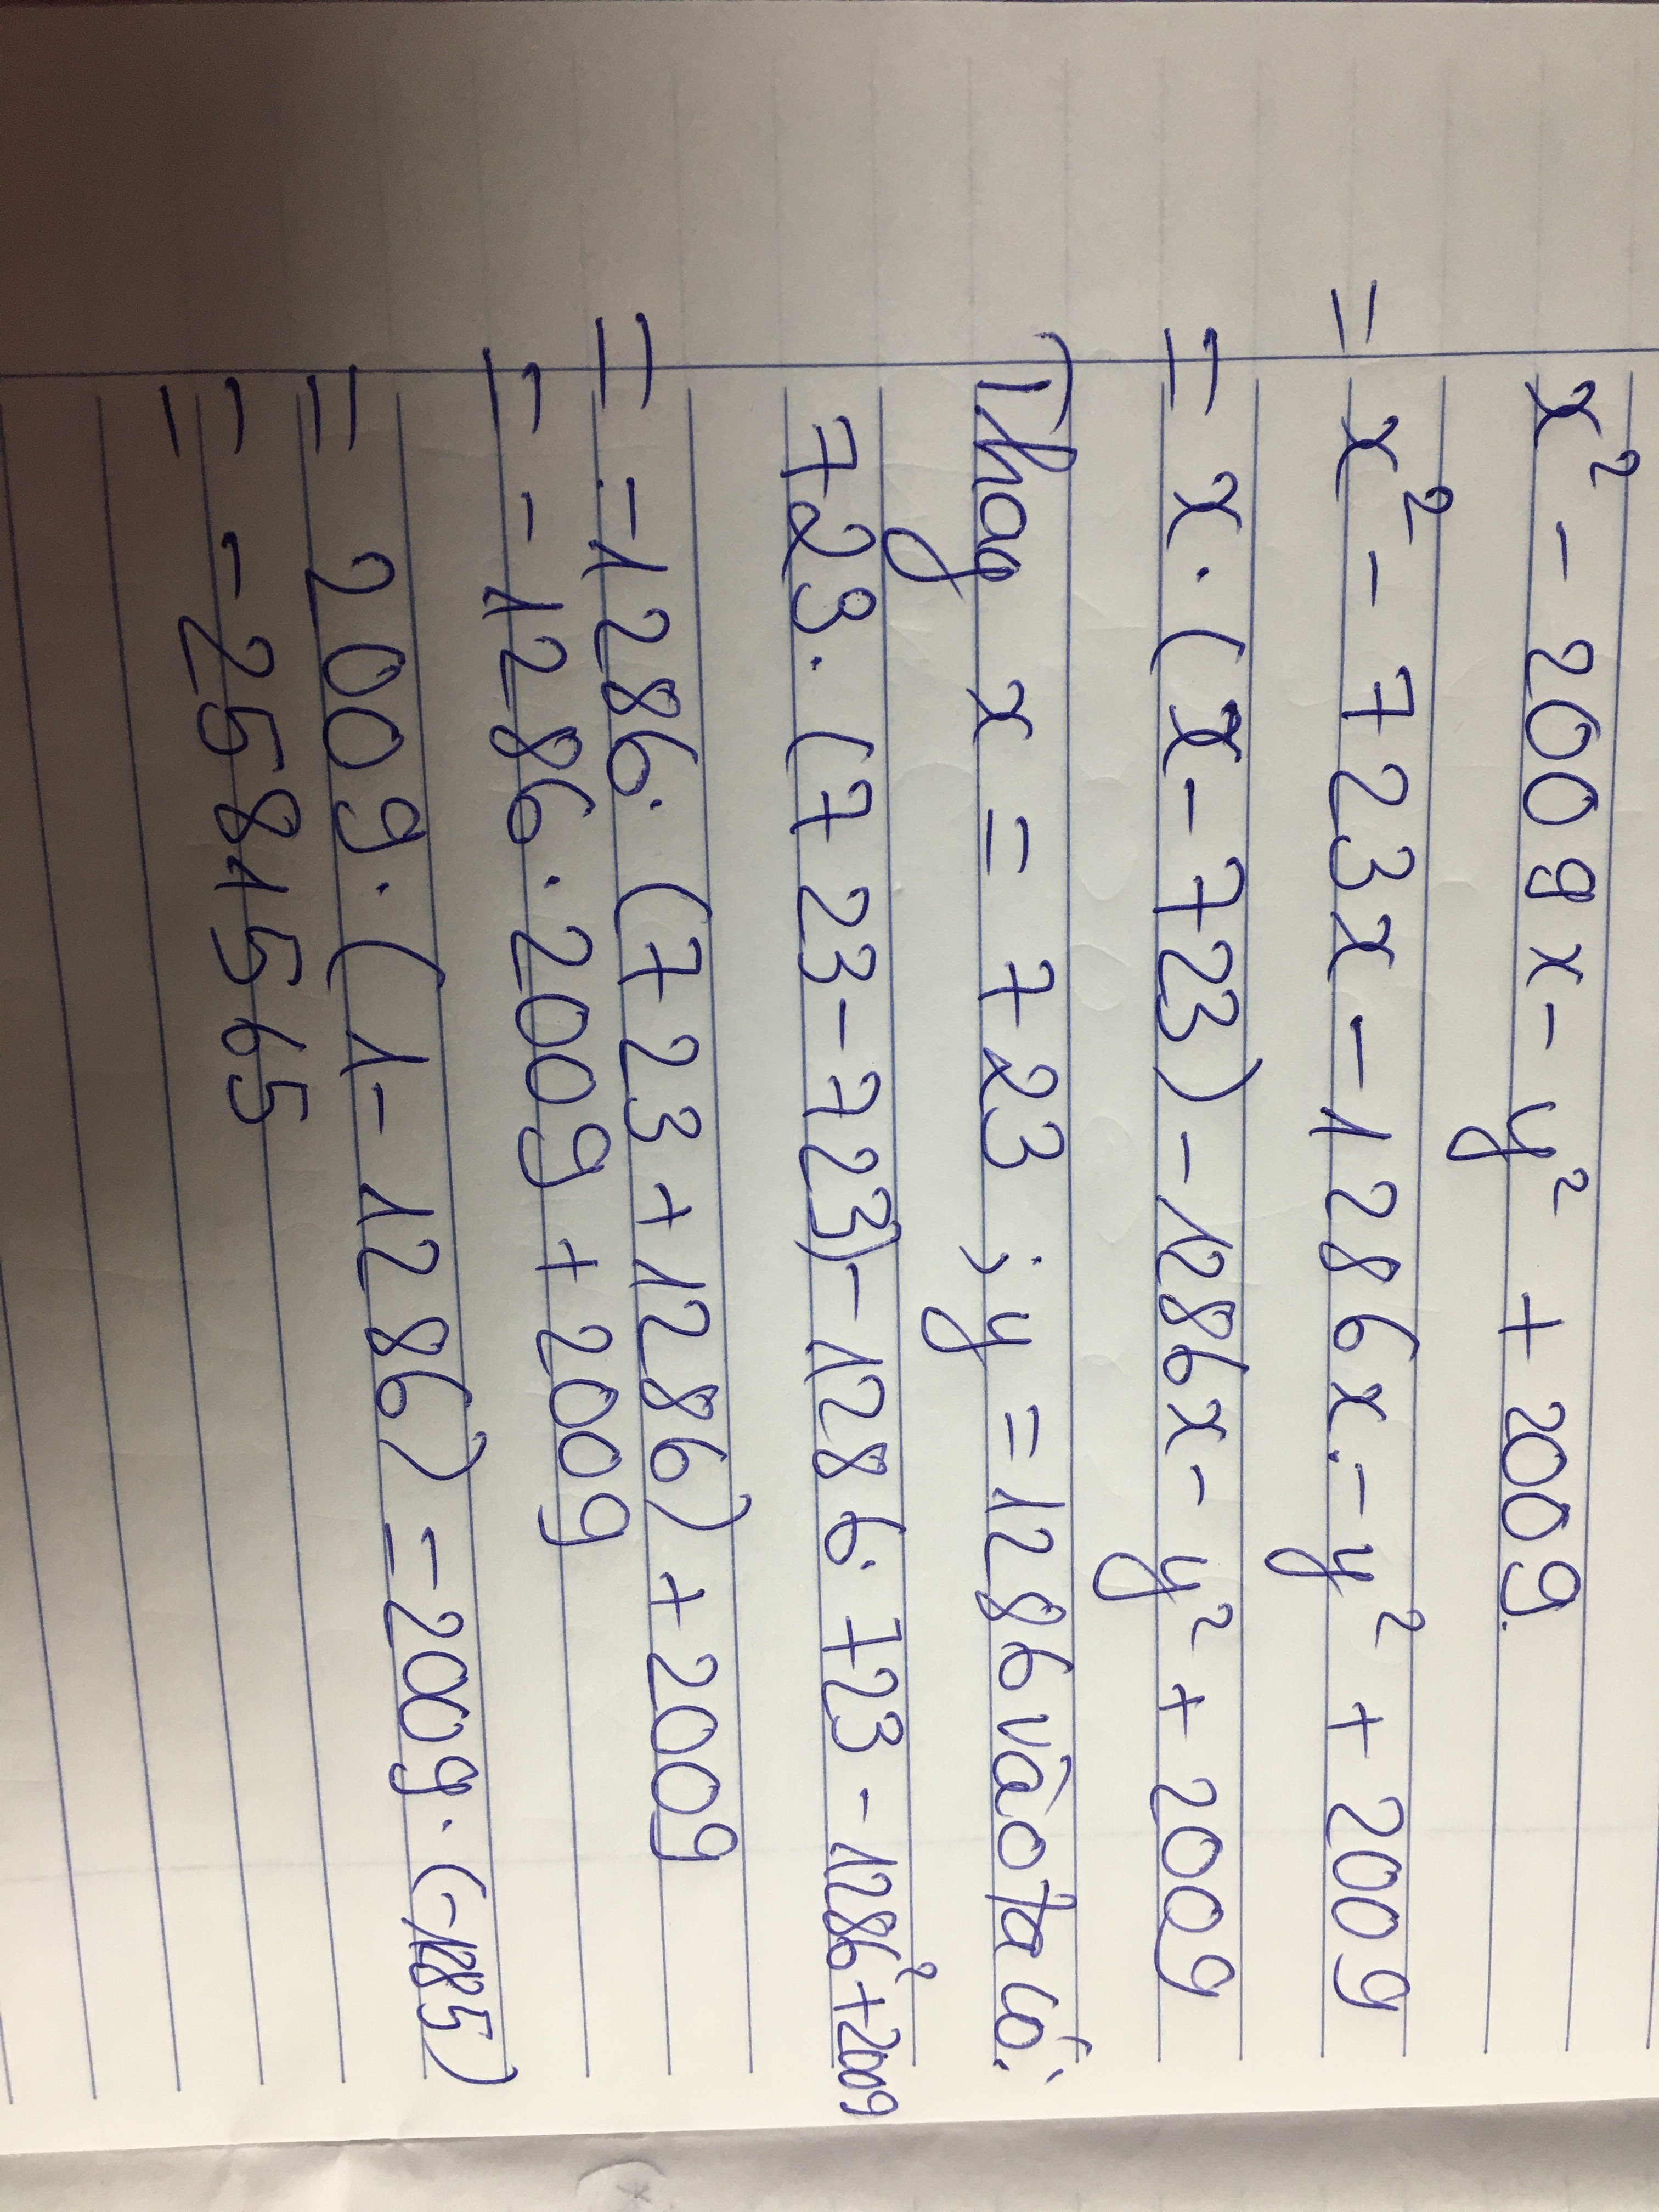 x² - 2009x - y² + 2009.
= x² - 723x - 1286x - y² + 2009
= x. (x - 723) - 1286x - y² + 2009
Thay x = 723 ; y = 1286 vào ta có:
723. (723 - 723) - 1286. 723 - 1286² + 2009
= - 1286. (723 + 1286) + 2009
= - 1286. 2009 + 2009
= 2009. (1 - 1286) = 2009. (-1285)
= - 2581565